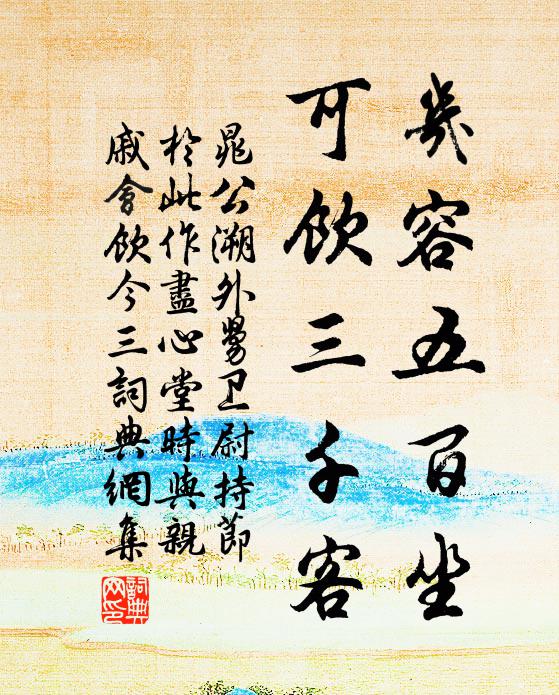 幾容五百坐
可飲三千客
晁公溯外舅卫尉持節
於此作盡心堂時與親
戚會飲今三詞典網集
詞典
网印